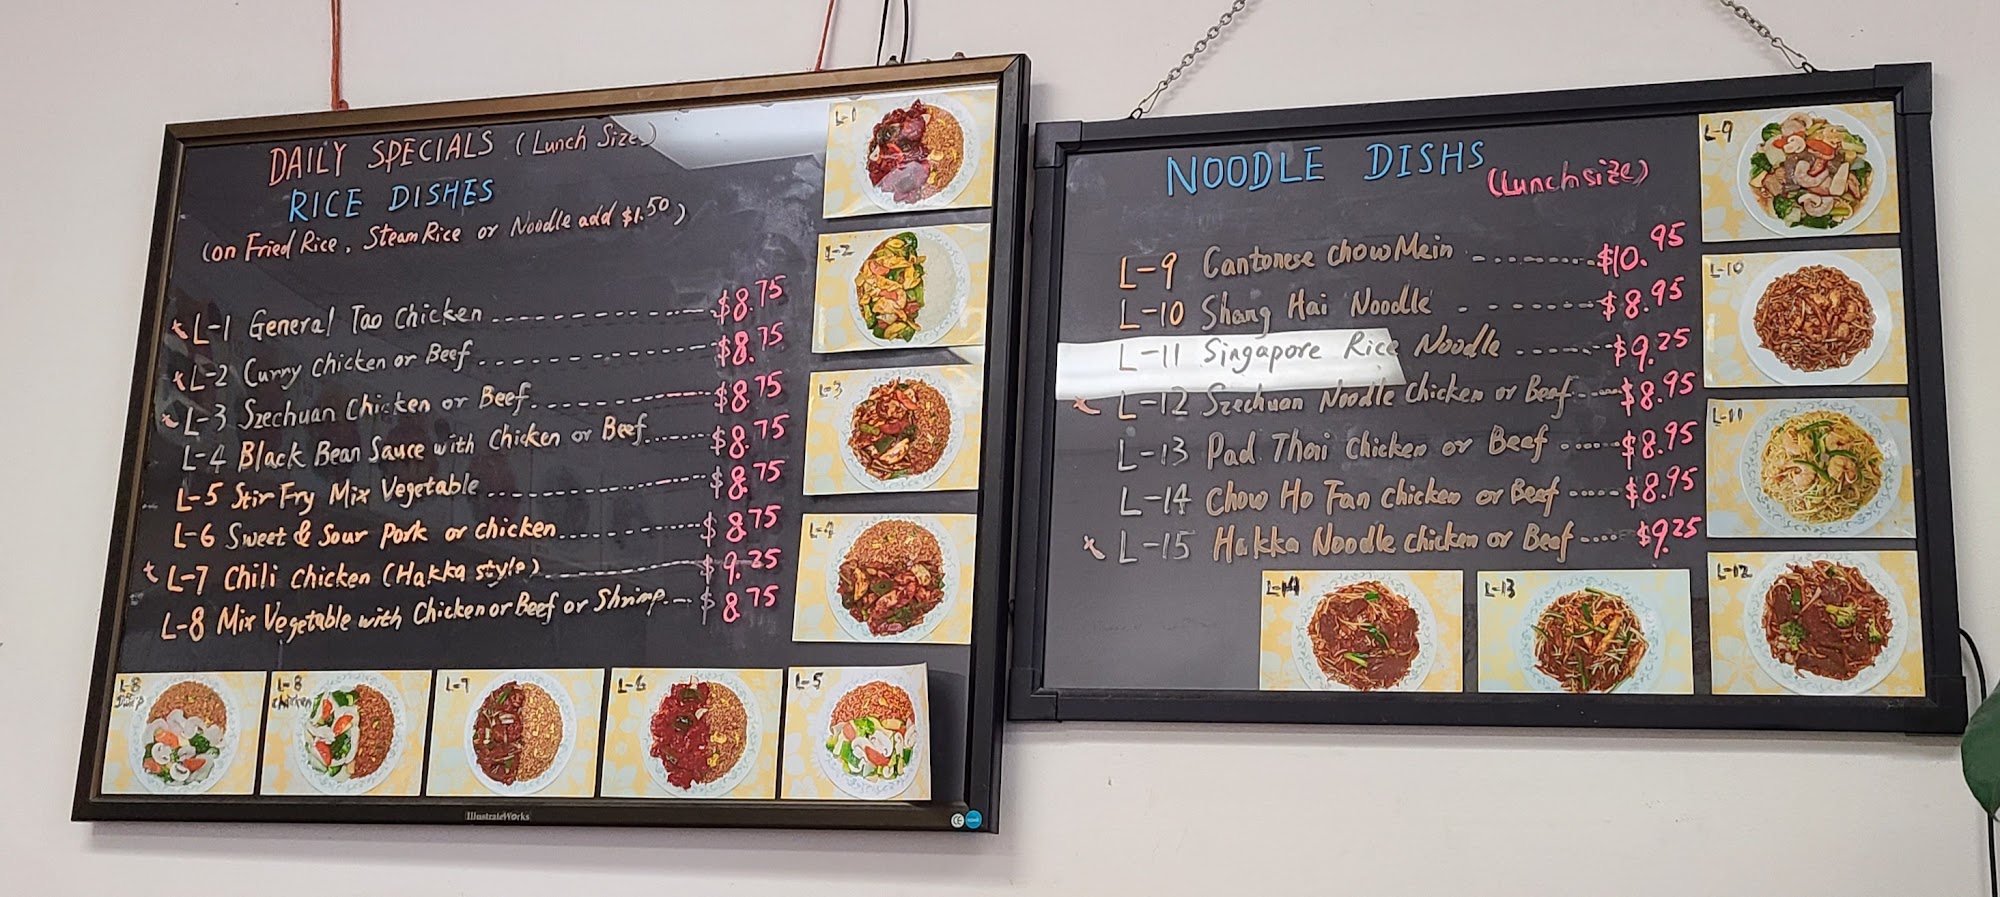 DAILY SPECIALS (Lunch Size)
RICE DISHES
(on Fried Rice, Steam Rice or Noodle add $1.50)
* L-1 General Tao Chicken $8.75
* L-2 Curry Chicken or Beef $8.75
* L-3 Szechuan Chicken or Beef $8.75
L-4 Black Bean Sauce with Chicken or Beef $8.75
L-5 Stir Fry Mix Vegetable $8.75
L-6 Sweet & Sour Pork or Chicken $8.75
* L-7 Chili Chicken (Hakka style) $9.25
L-8 Mix Vegetable with Chicken or Beef or Shrimp $8.75
L-1
L-2
L-3
L-4
L-8
Shrimp
L-8
chicken
L-7
L-6
L-5
IllustrateWorks
CE
NOODLE DISHS
(Lunch size)
L-9 Cantonese Chow Mein $10.95
L-10 Shang Hai Noodle $8.95
L-11 Singapore Rice Noodle $9.25
* L-12 Szechuan Noodle Chicken or Beef $8.95
L-13 Pad Thai Chicken or Beef $8.95
L-14 Chow Ho Fan Chicken or Beef $8.95
* L-15 Hakka Noodle Chicken or Beef $9.25
L-9
L-10
L-11
L-14
L-13
L-12